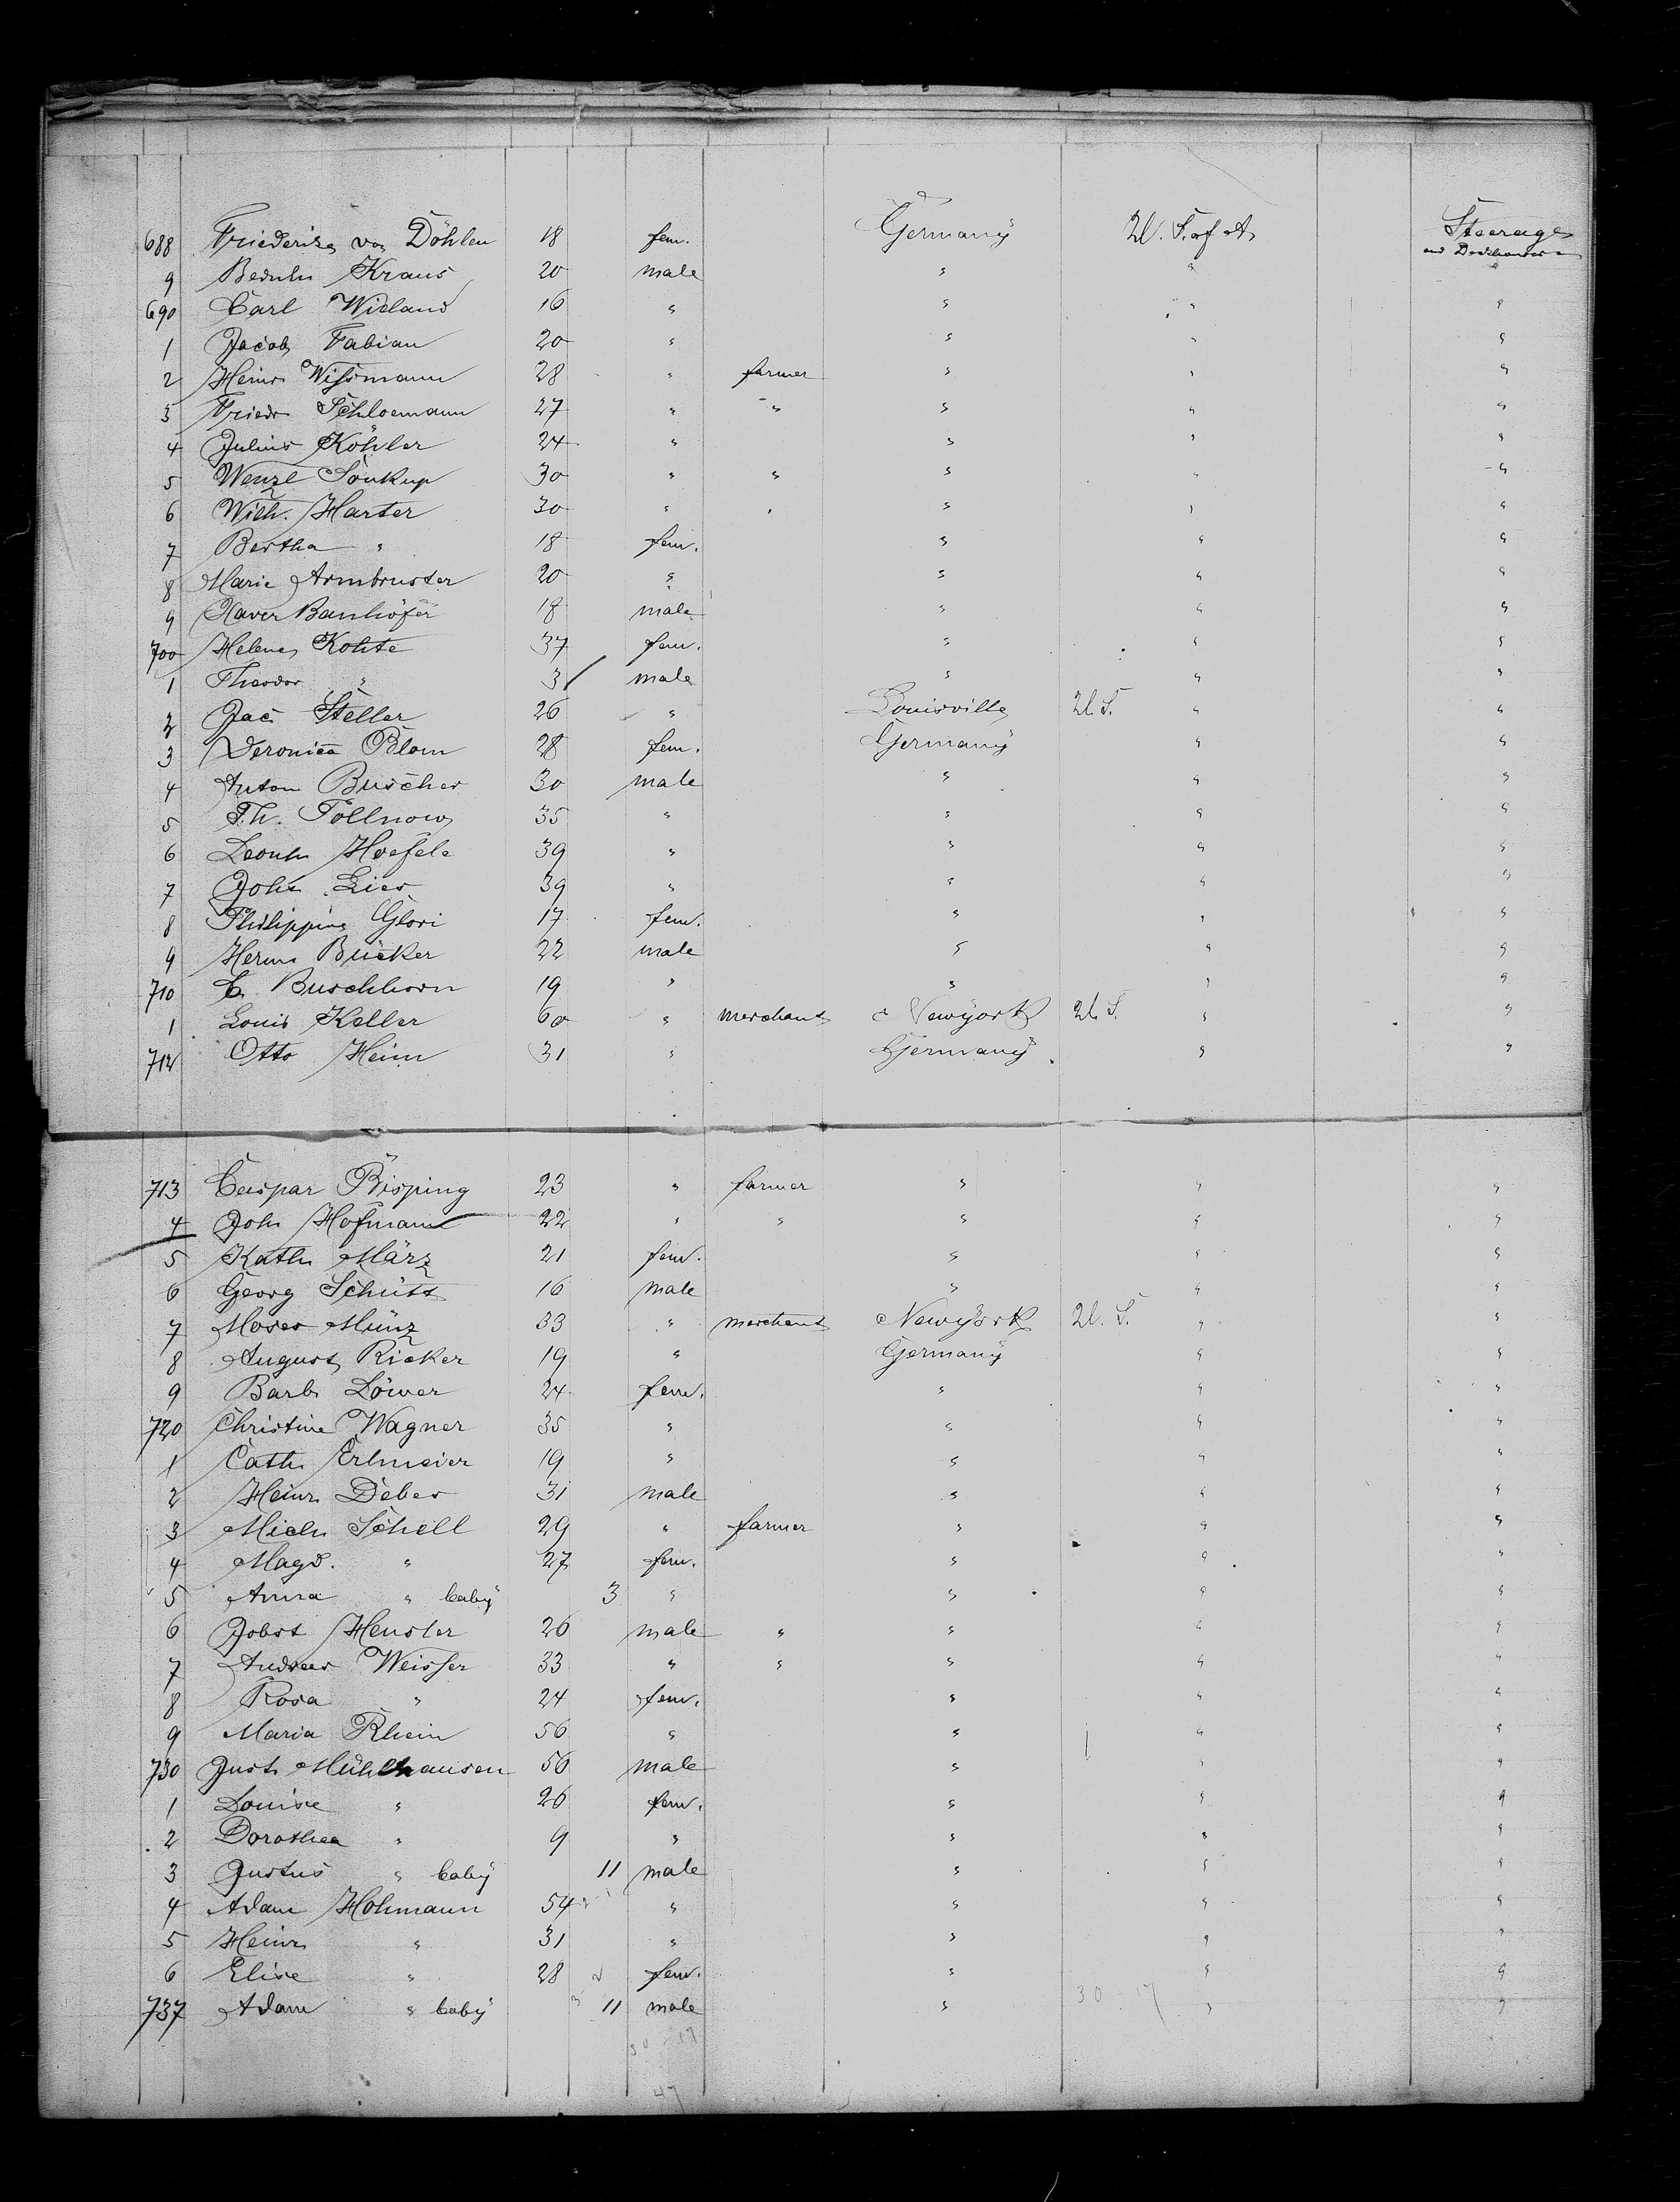 688 Friederike von Döhlen 18 fem. Germany U. S. of A. Steerage
and Deckhouse
9 Bernh. Kraus 20 male " " "
690 Carl Wieland 16 " " " "
1 Jacob Fabian 20 " " " "
2 Heinr. Wissmann 28 " farmer " " "
3 Friedr. Schloemann 27 " " " " "
4 Julius Köhler 24 " " " "
5 Wenzl Soukup 30 " " " " "
6 Wilh. Harter 30 " " " " "
7 Bertha " 18 fem. " " "
8 Marie Armbruster 20 " " " "
9 Xaver Banhöfer 18 male " " "
700 Helene Kohte 37 fem. " " "
1 Theodor " 3 male " " "
2 Jac. Steller 26 " Louisville U. S. " "
3 Veronica Blom 28 fem. Germany " "
4 Anton Buscher 30 male " " "
5 Th. Tollnow 35 " " " "
6 Leonh. Hoefele 39 " " " "
7 Joh. Lier 39 " " " "
8 Philippine Glori 17 fem. " " "
9 Herm. Bücker 22 male " " "
710 C. Buschhorn 19 " " " "
1 Louis Keller 60 " merchant Newyork U. S. " "
712 Otto Heim 31 " Germany " "
713 Caspar Bisping 23 " farmer " " "
4 Joh. Hofmann 22 " " " " "
5 Kath. März 21 fem. " " "
6 Georg Schütt 16 male " " "
7 Moses Münz 33 " merchant Newyork U. S. " "
8 August Ricker 19 " Germany " "
9 Barb. Löwer 24 fem. " " "
720 Christine Wagner 35 " " " "
1 Cath. Erlmeier 19 " " " "
2 Heinr. Deber 31 male " " "
3 Mich. Schell 29 " farmer " " "
4 Magd. " 27 fem. " " "
5 Anna " baby 3 " " " "
6 Jobst Hensler 26 male " " " "
7 Andreas Weisser 33 " " " " "
8 Rosa " 24 fem. " " "
9 Maria Rhein 56 " " " "
730 Just. Mühlhausen 56 male " " "
1 Louise " 26 fem. " " "
2 Dorothea " 9 " " " "
3 Justus " baby 11 male " " "
4 Adam Hohmann 54 " " " "
5 Heinr. " 31 " " " "
6 Elise " 28 fem. " " "
737 Adam " baby 11 male " " "
30 17
30 17
47